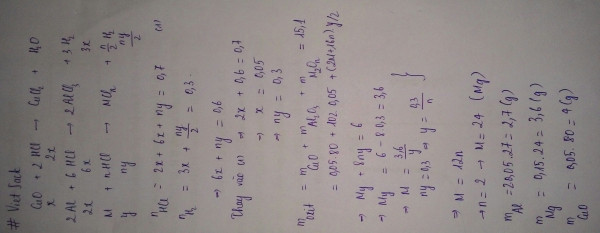 # Viet Sack
CuO + 2HCl → CuCl₂ + H₂O
x 2x
2Al + 6HCl → 2AlCl₃ + 3H₂
2x 6x 3x
M + nHCl → MClₙ + n/2 H₂
y ny ny/2
n HCl = 2x + 6x + ny = 0,7 (1)
n H₂ = 3x + ny/2 = 0,3
⇒ 6x + ny = 0,6
Thay vào (1) ⇒ 2x + 0,6 = 0,7
⇒ x = 0,05
⇒ ny = 0,3
m oxit = m CuO + m Al₂O₃ + m M₂Oₙ = 15,1
= 0,05.80 + 102.0,05 + (2M+16n) y/2
⇒ My + 8ny = 6
⇒ My = 6 - 8.0,3 = 3,6
⇒ M = 3,6/y
ny = 0,3 ⇒ y = 0,3/n }
⇒ M = 12n
→ n = 2 → M = 24 (Mg)
m Al = 2.0,05.27 = 2,7 (g)
m Mg = 0,15.24 = 3,6 (g)
m CuO = 0,05.80 = 4 (g)